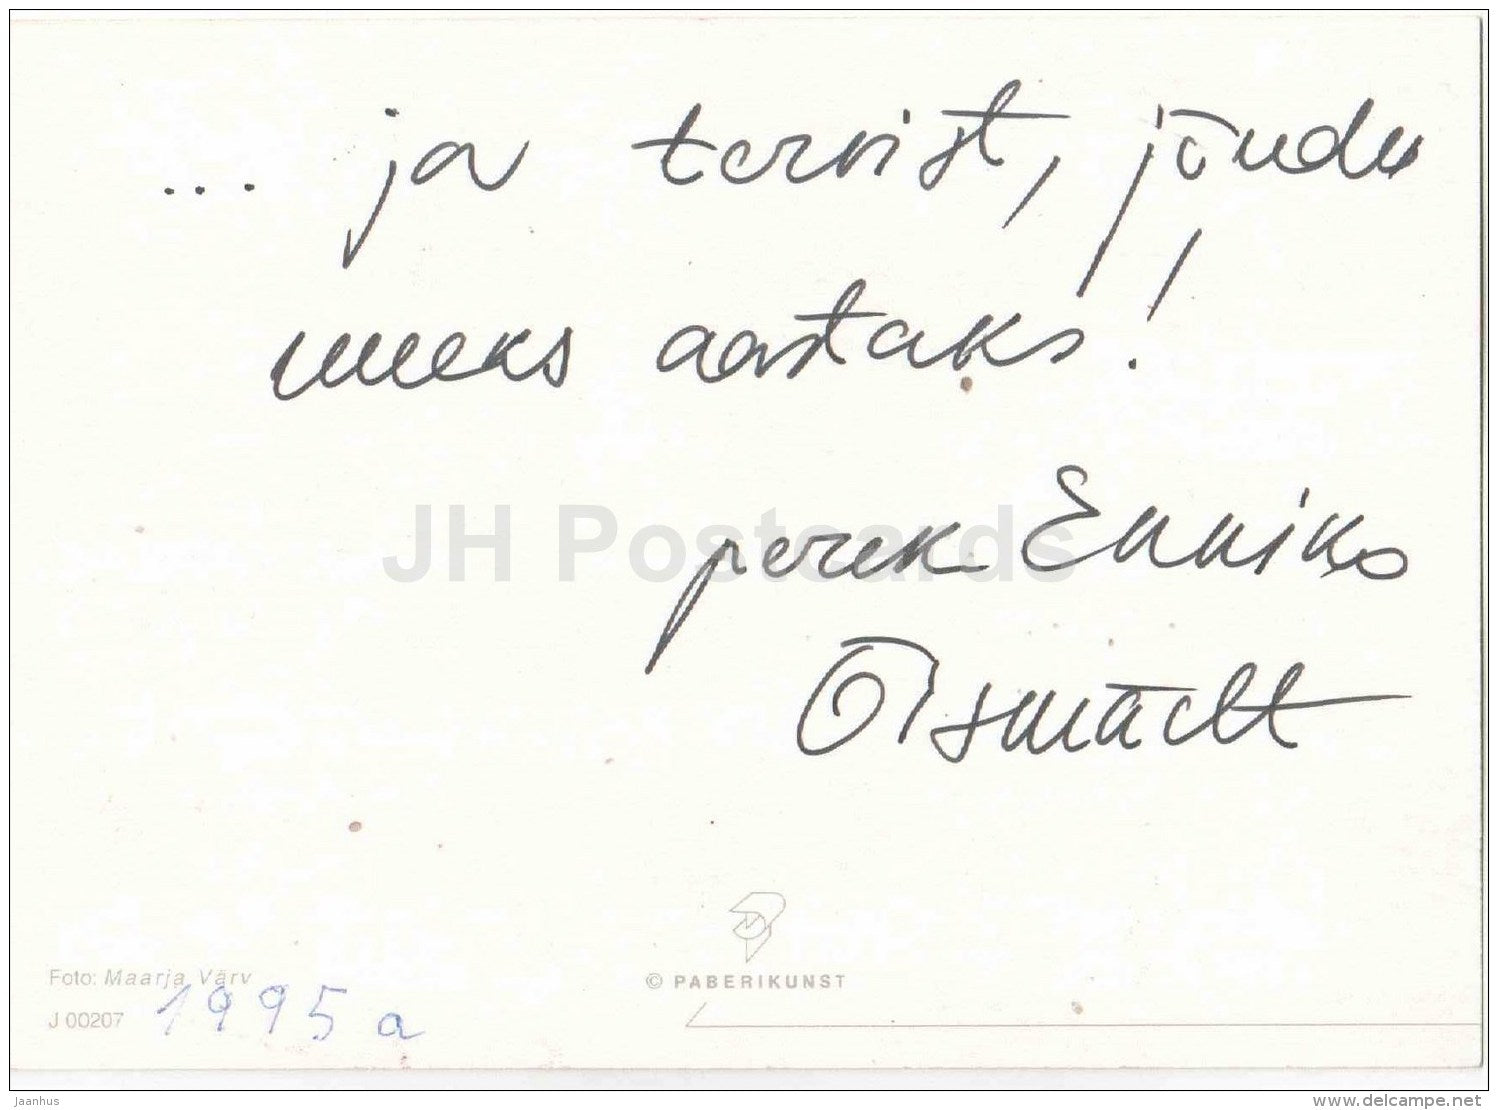 ... ja tervist, jõudu
uueks aastaks!
perek Enniko
JH Postcards
Foto: Maarja Värv
J 00207
1995 a
© PABERIKUNST
Jaanhus
www.delcampe.net